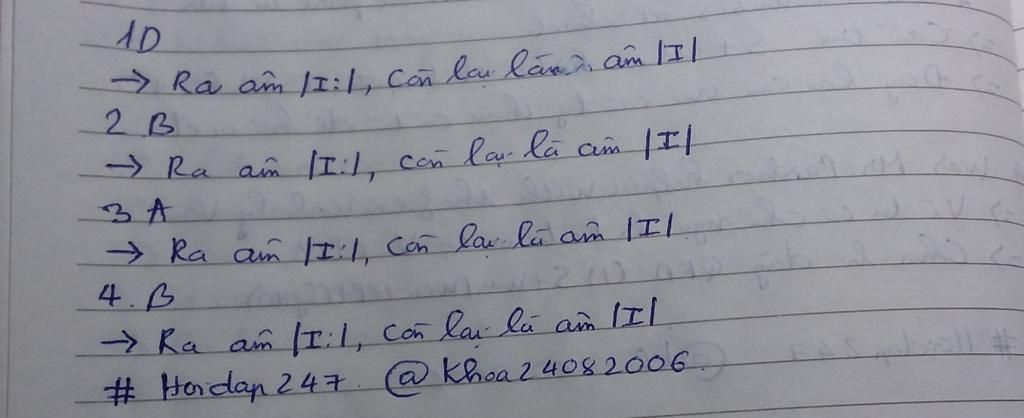 1D
→ Ra âm |I:|, còn lại là âm |I|
2 B
→ Ra âm |I:|, còn lại là âm |I|
3 A
→ Ra âm |I:|, còn lại là âm |I|
4. B
→ Ra âm |I:|, còn lại là âm |I|
# Hoidap247. @Khoa24082006.